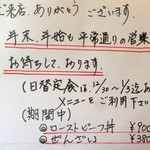 ご来店、ありがとう ございます。
年末、年始も 平常通りの営業
お待ちして、おります。
(日替定食は、12/30～1/3迄お
メニューをご利用下さい
(期間中)
◎ローストビーフ丼 ¥900
◎ぜんざい ¥380